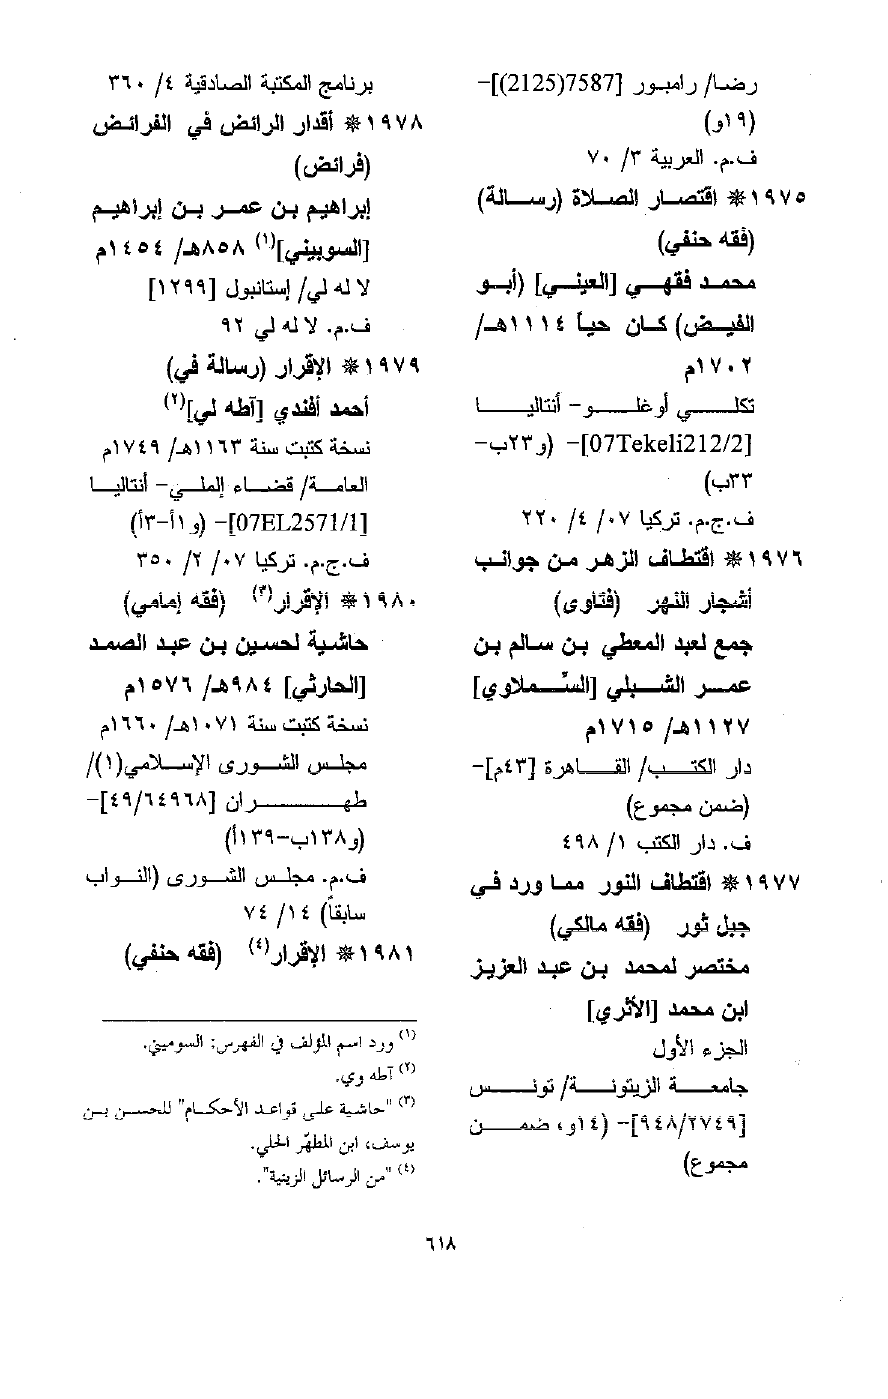 رضا/ رامبور [7587(2125)]-
(١٩و)
ف.م. العربية ٣/ ٧٠
١٩٧٥* اقتصار الصلاة (رسالة)
(فقه حنفي)
محمد فقهي [العيني] (أبو
الفيض) كان حياً ١١١٤هـ/
١٧٠٢م
تكلي أوغلو- أنتاليا
[07Tekeli212/2]- (و٢٣ب-
٣٣ب)
ف.ج.م. تركيا ٠٧/ ٤/ ٢٢٠
١٩٧٦* اقتطاف الزهر من جوانب
أشجار النهر (فتاوى)
جمع لعبد المعطي بن سالم بن
عمر الشبلي [السِّملاوي]
١١٢٧هـ/ ١٧١٥م
دار الكتب/ القاهرة [٤٣م]-
(ضمن مجموع)
ف. دار الكتب ١/ ٤٩٨
١٩٧٧* اقتطاف النور مما ورد في
جبل ثور (فقه مالكي)
مختصر لمحمد بن عبد العزيز
ابن محمد [الأثري]
الجزء الأول
جامعة الزيتونة/ تونس
[٩٤٨/٢٧٤٩]- (١٤و، ضمن
مجموع)
برنامج المكتبة الصادقية ٤/ ٣٦٠
١٩٧٨* أقدار الرائض في الفرائض
(فرائض)
إبراهيم بن عمر بن إبراهيم
[السوبيني](١) ٨٥٨هـ/ ١٤٥٤م
لا له لي/ إستانبول [١٢٩٩]
ف.م. لا له لي ٩٢
١٩٧٩* الإقرار (رسالة في)
أحمد أفندي [آطه لي](٢)
نسخة كتبت سنة ١١٦٣هـ/ ١٧٤٩م
العامة/ قضاء إلملي- أنتاليا
[07EL2571/1]- (و١أ-٣أ)
ف.ج.م. تركيا ٠٧/ ٢/ ٣٥٠
١٩٨٠* الإقرار(٣) (فقه إمامي)
حاشية لحسين بن عبد الصمد
[الحارثي] ٩٨٤هـ/ ١٥٧٦م
نسخة كتبت سنة ١٠٧١هـ/ ١٦٦٠م
مجلس الشورى الإسلامي(١)/
طهران [٤٩/٦٤٩٦٨]-
(و١٣٨ب-١٣٩أ)
ف.م. مجلس الشورى (النواب
سابقاً) ١٤/ ٧٤
١٩٨١* الإقرار(٤) (فقه حنفي)
(١) ورد اسم المؤلف في الفهرس: السوميني.
(٢) آطه وي.
(٣) "حاشية على قواعد الأحكام" للحسن بن
يوسف، ابن المطهّر الحلي.
(٤) "من الرسائل الزينية".
٦١٨